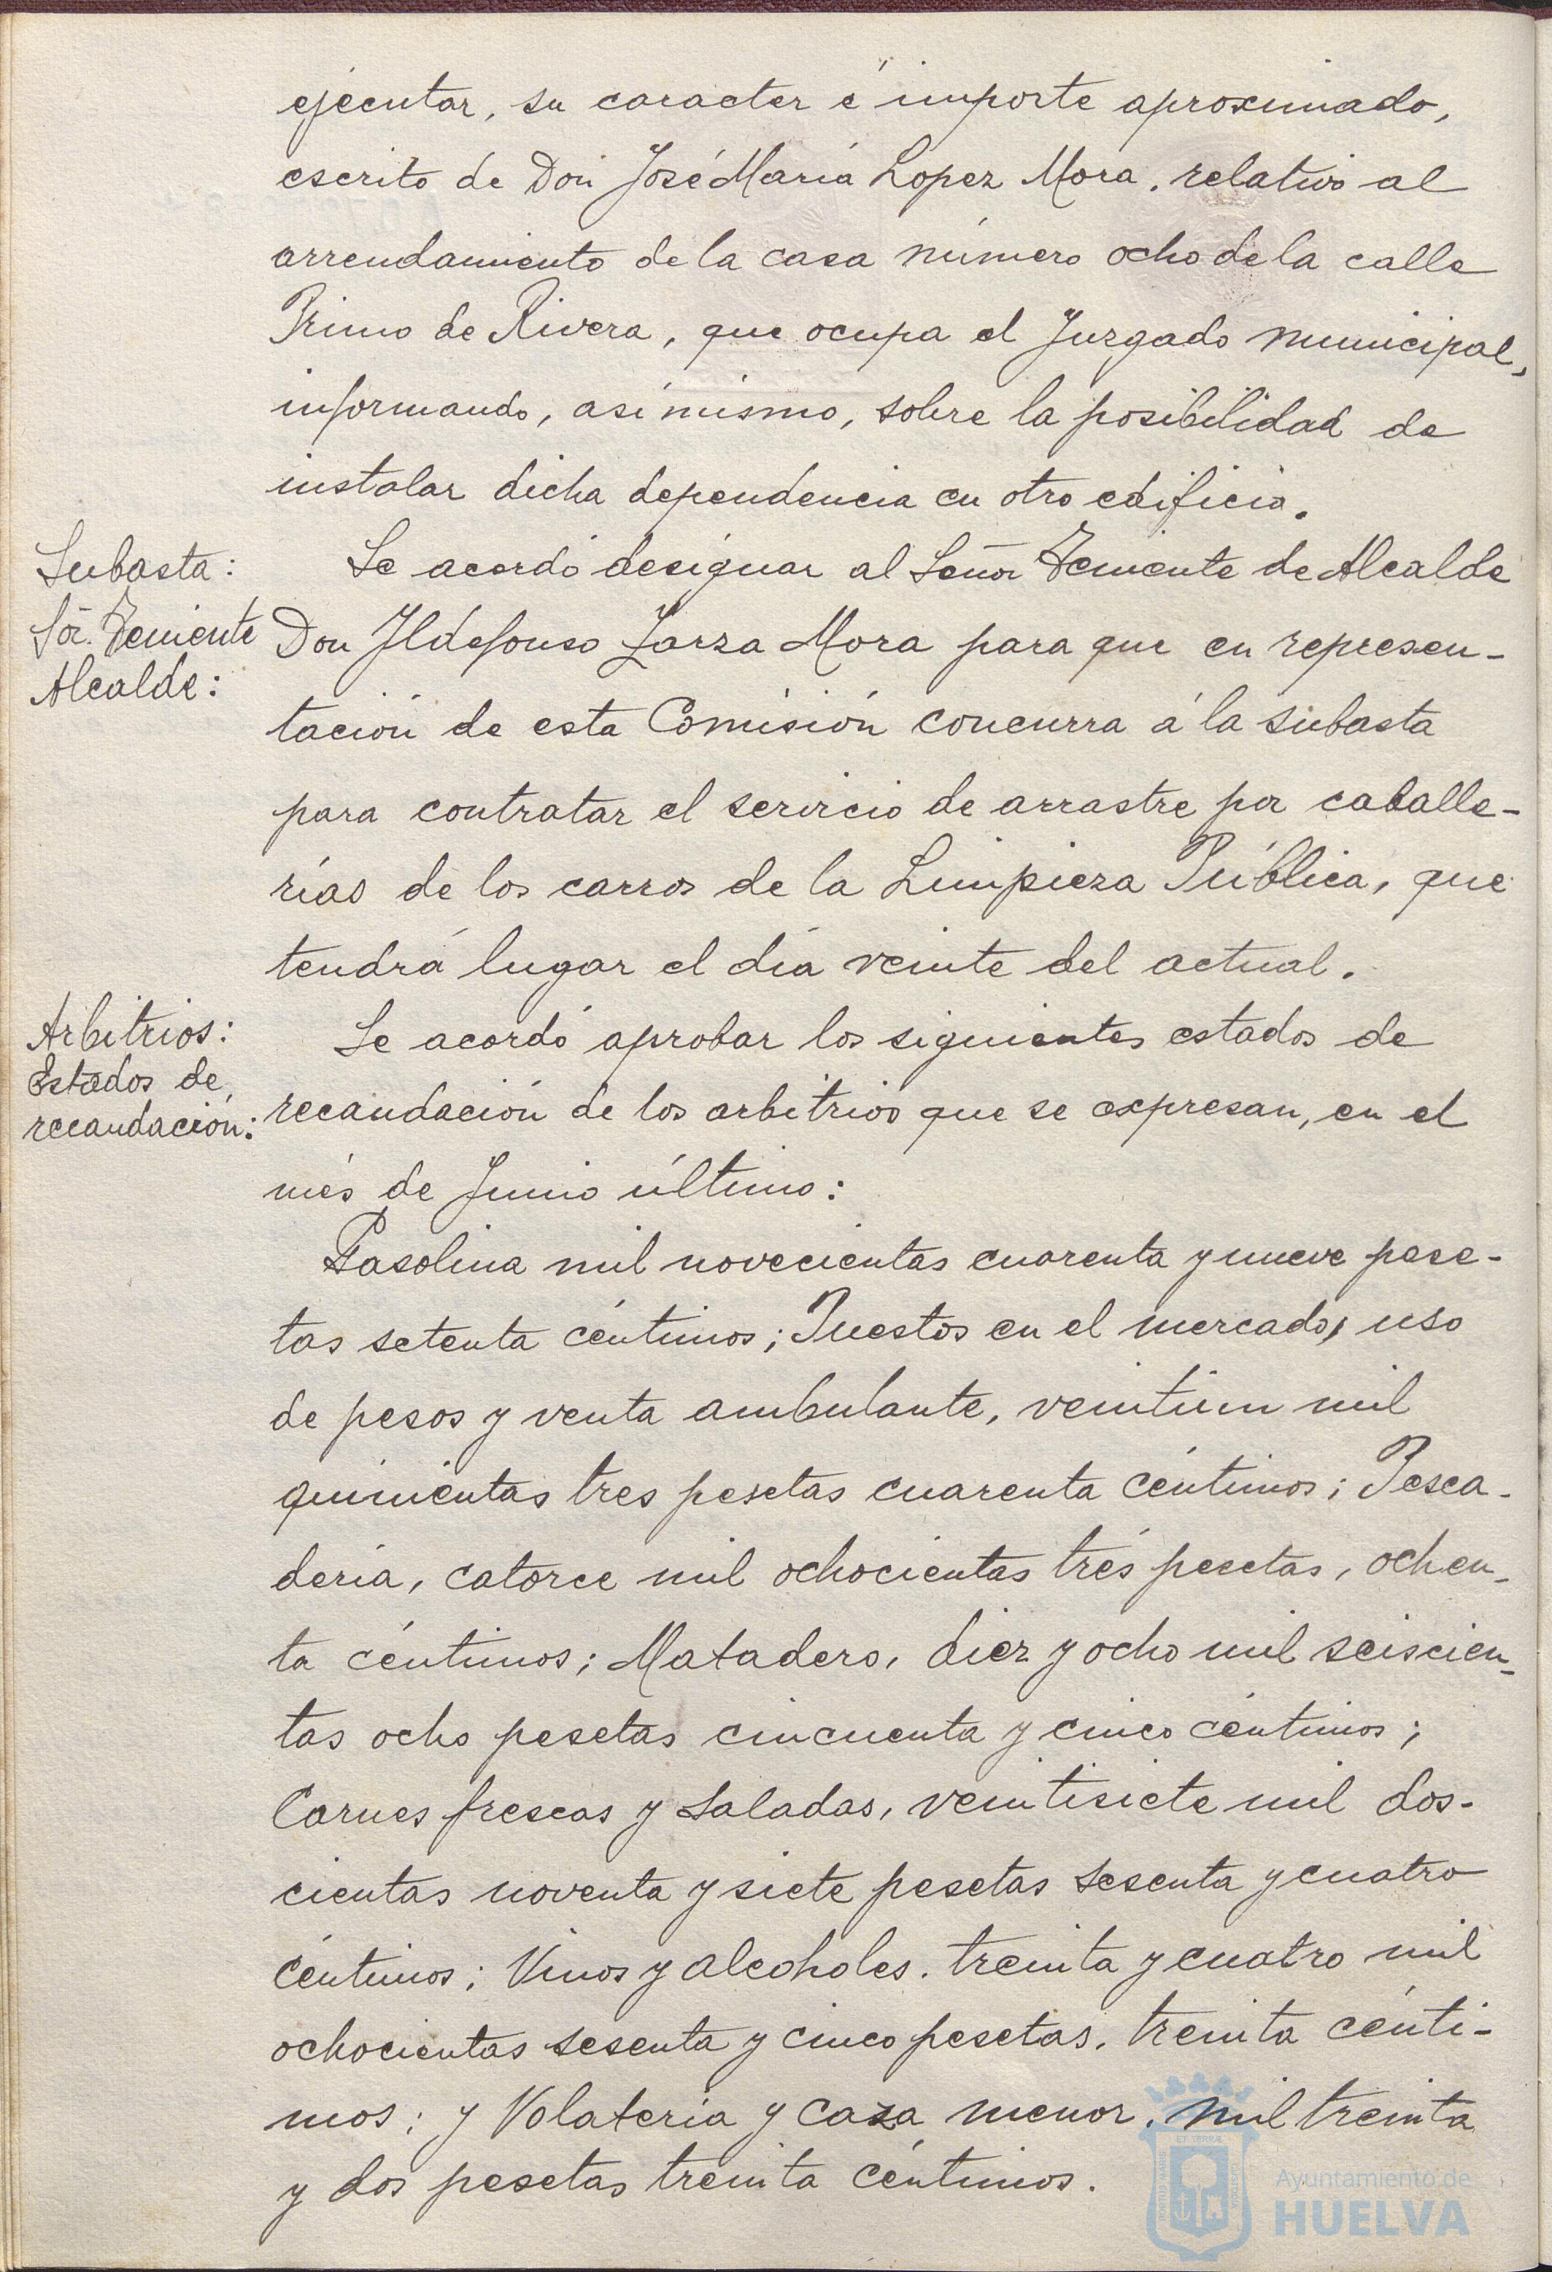 ejecutar, su caracter é importe aproximado,
escrito de Don José María Lopez Mora, relativo al
arrendamiento de la casa número ocho de la calle
Primo de Rivera, que ocupa el Juzgado municipal,
informando, asímismo, sobre la posibilidad de
instalar dicha dependencia en otro edificio.
Subasta:
Sör. Teniente
Alcalde:
Se acordó designar al Señor Teniente de Alcalde
Don Ildefonso Zarza Mora para que en represen-
tación de esta Comisión concurra á la subasta
para contratar el servicio de arrastre por caballe-
rías de los carros de la Limpieza Pública, que
tendrá lugar el día veinte del actual.
Arbitrios:
Estados de
recaudación:
Se acordó aprobar los siguientes estados de
recaudación de los arbitrios que se expresan, en el
més de Junio último:
Gasolina mil novecientas cuarenta y nueve pese-
tas setenta céntimos; Puestos en el mercado, uso
de pesos y venta ambulante, veintiun mil
quinientas tres pesetas cuarenta céntimos; Pesca-
dería, catorce mil ochocientas trés pesetas, ochen-
ta céntimos; Matadero, diez y ocho mil seiscien-
tas ocho pesetas cincuenta y cinco céntimos;
Carnes frescas y saladas, veintisiete mil dos-
cientas noventa y siete pesetas sesenta y cuatro
céntimos; Vinos y alcoholes, treinta y cuatro mil
ochocientas sesenta y cinco pesetas, treinta cénti-
mos; y Volatería y caza menor, mil treinta
y dos pesetas treinta céntimos.
Ayuntamiento de
HUELVA